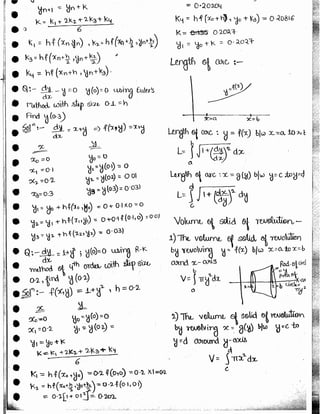 yn+1 = yn + K
K = K1 + 2K2 + 2K3 + K4
6
K1 = hf(xn, yn), K2 = hf(xn + h/2, yn + K1/2)
K3 = hf(xn + h/2, yn + K2/2)
K4 = hf(xn + h, yn + K3).
Q:- dy/dx - y = 0 y(0)=0 using Euler's
method with step size 0.1 = h
Find y(0.3)
Solⁿ:- dy/dx = x+y => f(x,y) = x+y
x y
x0=0 y0=0
x1=0.1 y1=y(0.1) = 0
x2=0.2 y2=y(0.2) = 0.01
x3=0.3 y3=y(0.3)=0.031
y1 = y0 + hf(x0, y0) = 0+0.1×0 = 0
y2 = y1 + hf(x1, y1) = 0+0.1f(0.1, 0) = 0.01
y3 = y2 + hf(x2, y2) = 0.031
Q:- dy/dx = 1+y² ; y(0)=0 using R-K
method of 4th order with step size
0.2, find y(0.2)
Solⁿ:- f(x,y) = 1+y², h = 0.2
x y
x0=0 y0=y(0)=0
x1=0.2 y1=y(0.2) =
y1=y0+K
K = K1 + 2K2 + 2K3 + K4
6
K1 = hf(x0, y0) = 0.2 f(0,0) = 0.2×1 = 0.2
K2 = hf(x0 + h/2, y0 + K1/2) = 0.2 f(0.1, 0.1)
= 0.2[1+0.1²] = 0.202
= 0.20204
K4 = hf(x0+h, y0+K3) = 0.20816
K = 0.2027
y1 = y0 + K = 0.2027
Length of arc :-
y=f(x)
x=a x=b
Length of arc : y = f(x) b/w x=a to x=b
L = ∫ab √1+(dy/dx)² dx
Length of arc : x = g(y) b/w y=c to y=d
L = ∫cd √1+(dx/dy)² dy
Volume of solid of revolution-
1) The volume of solid of revolution
by revolving y = f(x) b/w x=a to x=b
around x-axis
V = ∫ab πy² dx
2) The volume of solid of revolution
by revolving x = g(y) b/w y=c to
y=d around y-axis
V = ∫cd πx² dx